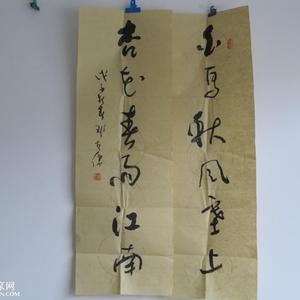 白马秋风塞上
杏花春雨江南
戊子新春
家网